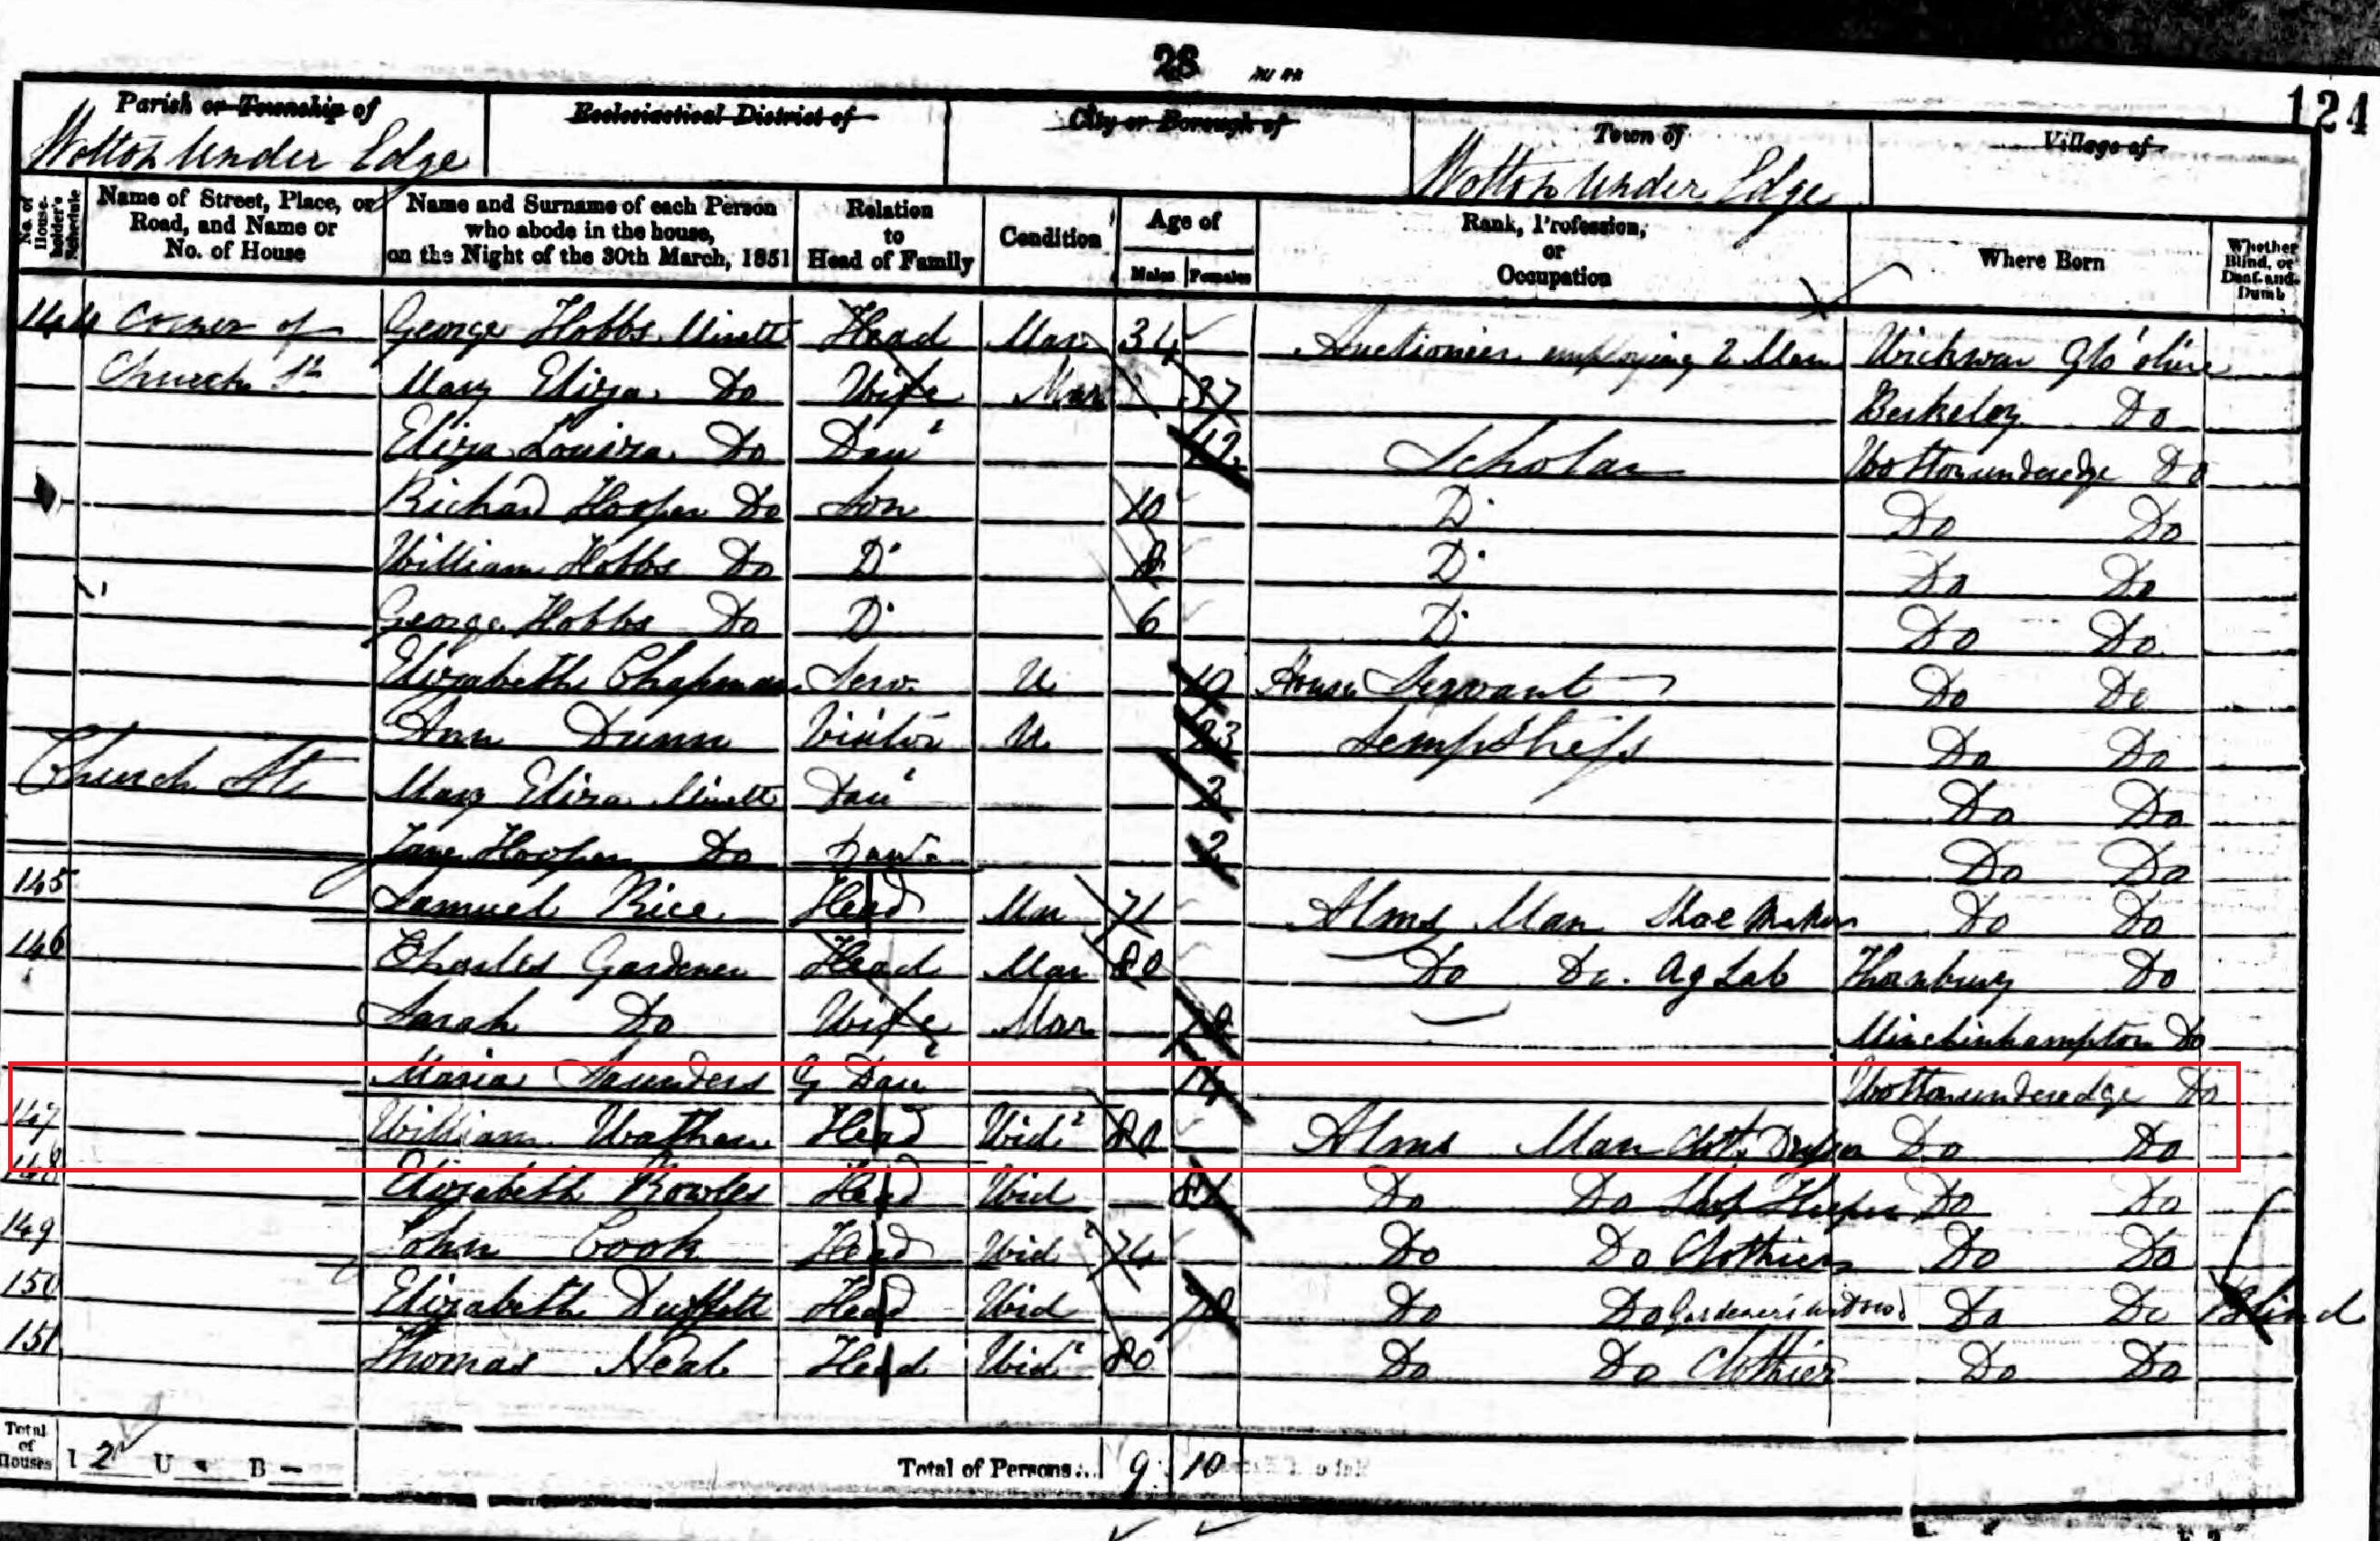 28
124
Parish or Township of
Wotton Under Edge
Ecclesiastical District of
City or Borough of
Town of
Wotton Under Edge
Village of
No. of House-holder's Schedule
Name of Street, Place, or Road, and Name or No. of House
Name and Surname of each Person who abode in the house, on the Night of the 30th March, 1851
Relation to Head of Family
Condition
Age of
Males Females
Rank, Profession, or Occupation
Where Born
Whether Blind, or Deaf-and-Dumb
144 Corner of George Hobbs Minett Head Mar 34 Auctioneer employing 2 Men Wickwar Glo'shire
Church St Mary Eliza Do Wife Mar 37 Berkeley Do
Eliza Louisa Do Daur 12 Scholar Wottonunderedge Do
Richard Hooper Do Son 10 Do Do Do
William Hobbs Do Do 8 Do Do Do
George Hobbs Do Do 6 Do Do Do
Elizabeth Chapman Serv. U House Servant Do Do
Ann Dunn Visitor U 23 Sempstress Do Do
Church St. Mary Eliza Minett Daur 3 Do Do
Jane Hooper Do Daur 2 Do Do
145 Samuel Rice Head Mar 71 Alms Man Shoe Maker Do Do
146 Charles Gardener Head Mar 80 Do Do. Ag Lab Thornbury Do
Sarah Do Wife Mar Minchinhampton Do
Maria Saunders G Daur 14 Wottonunderedge Do
147 William Wathen Head Widr 80 Alms Man Clot. Do Do
148 Elizabeth Rowles Head Wid 81 Do Do Do Do
149 John Cook Head Widr 74 Do Do Clothier Do Do
150 Elizabeth Head Wid 70 Do Do Gardener's widow Do Do Blind
151 Thomas Neal Head Widr 80 Do Do Clothier Do Do
Total of Houses I 2 U - B - Total of Persons... 9 10